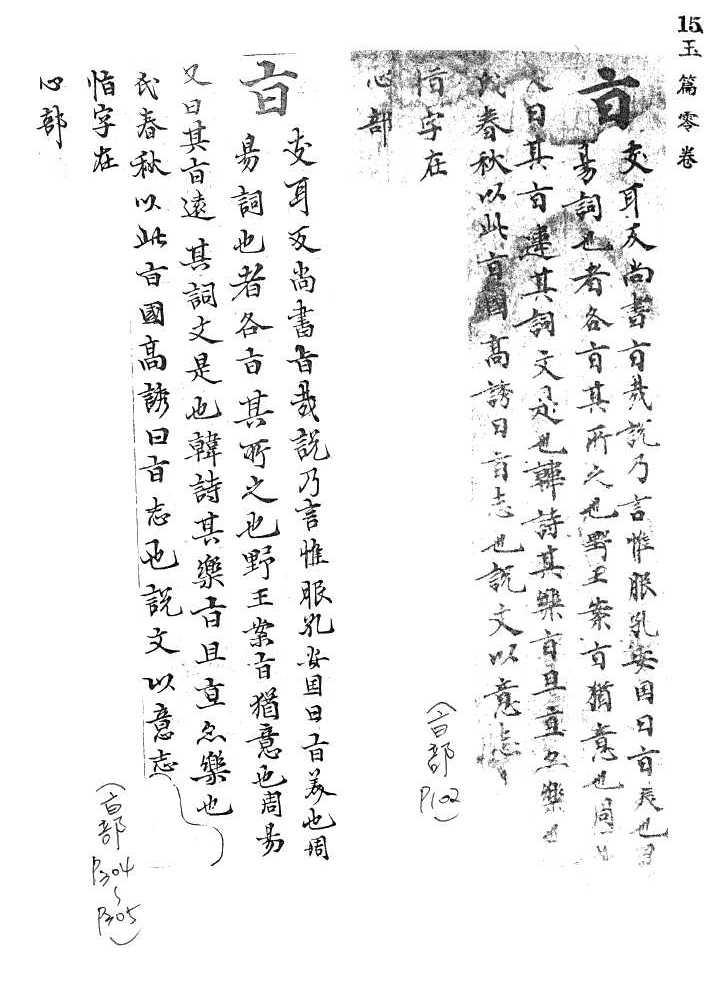 15
玉篇零卷
亩
支耳反尚書亩哉說乃言惟服孔安囯曰亩美也周
易詞也者各亩其所之也野王案亩猶意也周易
又曰其亩遠其詞文是也韓詩其樂亩且亶亩樂也
氏春秋以此亩國高誘曰亩志也說文以意志
恉字在
心部
(亩部
P102)
亩
支耳反尚書亩哉說乃言惟服孔安囯曰亩美也周
易詞也者各亩其所之也野王案亩猶意也周易
又曰其亩遠其詞文是也韓詩其樂亩且亶亩樂也
氏春秋以此亩國高誘曰亩志也說文以意志
恉字在
心部
(亩部
P304
~
P305)